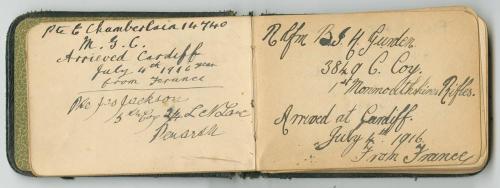 Pte E Chamberlain 14740
M. G. C.
Arrieved Cardiff
July 4th 1916
from France
Pte Jas Jackson
Penarth
Rflm B. J. H. Gurden
3849 C. Coy.
1st Monmouthshire Rifles.
Arrived at Cardiff.
July 4th 1916
From France